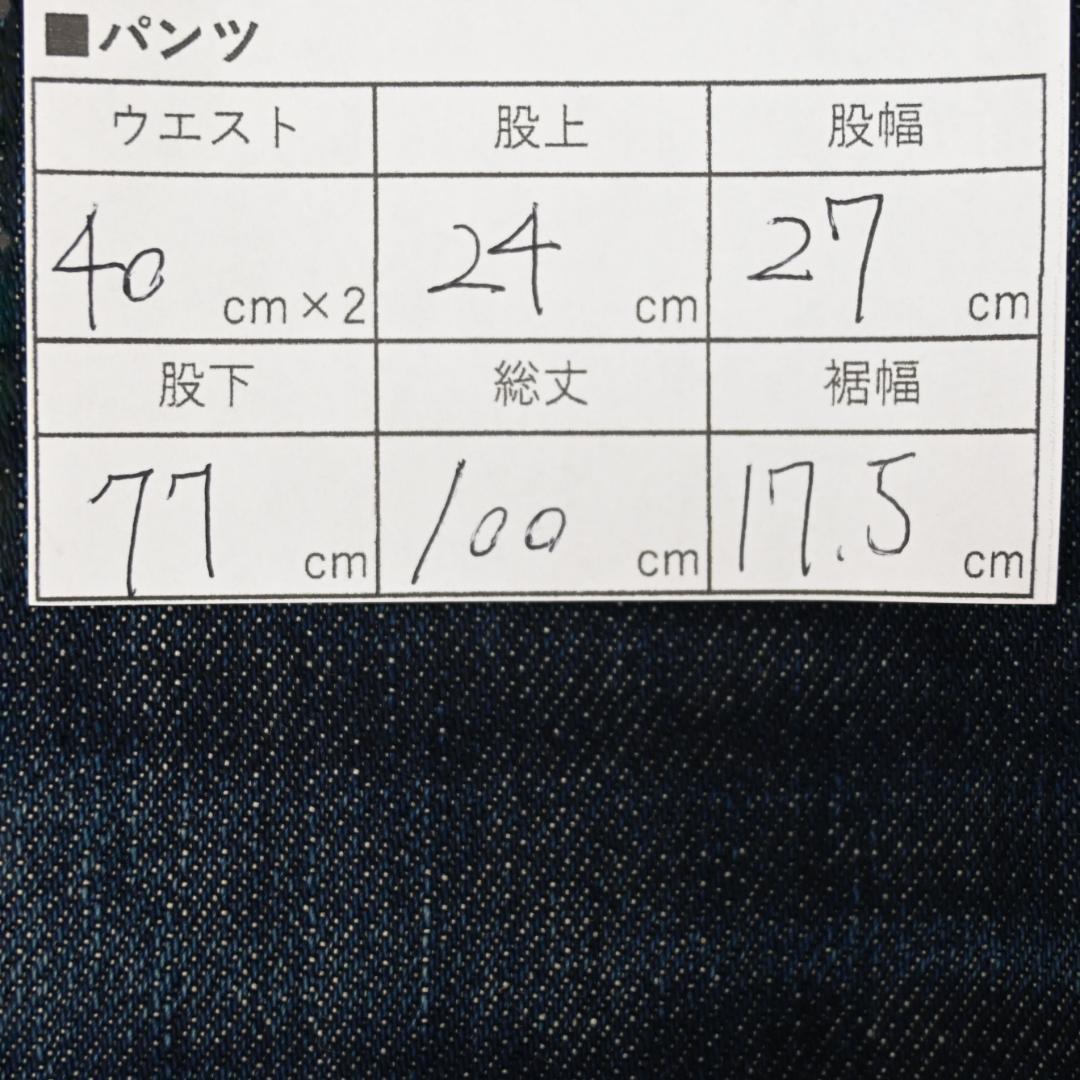 ■パンツ
ウエスト 股上 股幅
40 cm×2 24 cm 27 cm
股下 総丈 裾幅
77 cm 100 cm 17.5 cm